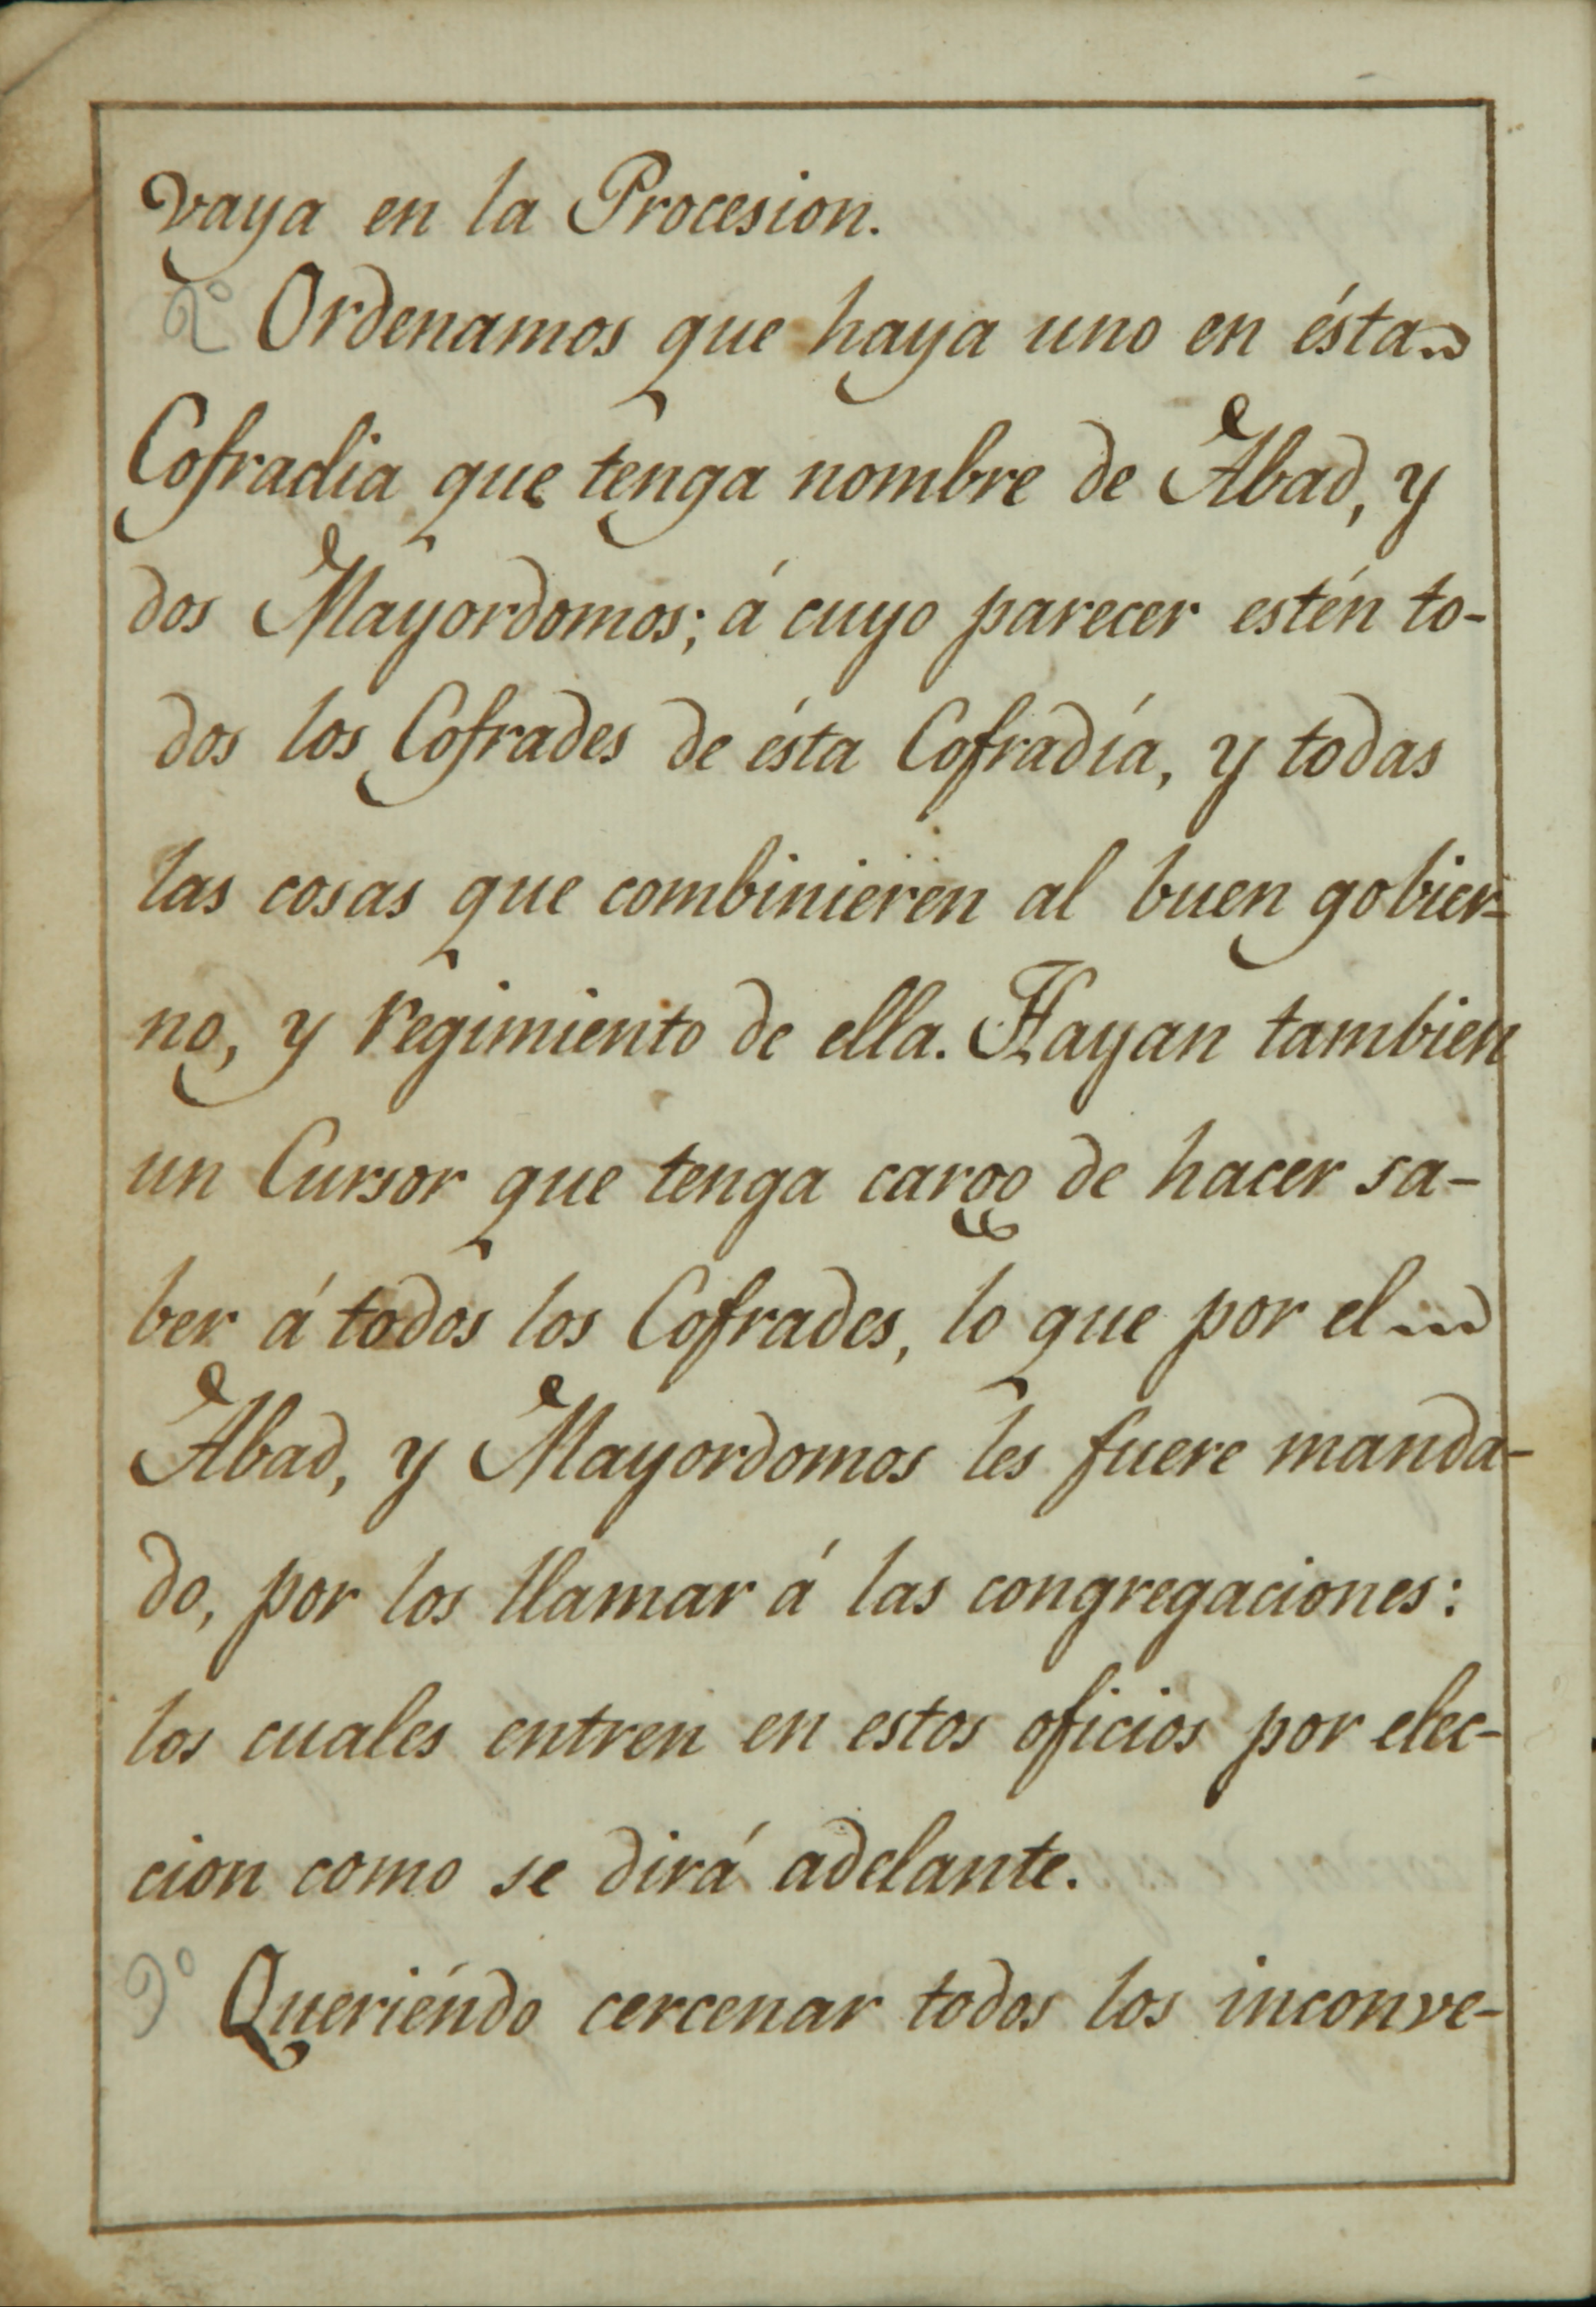 vaya en la Procesion.
2º Ordenamos que haya uno en ésta
Cofradia que tenga nombre de Abad, y
dos Mayordomos; á cuyo parecer estén to-
dos los Cofrades de ésta Cofradía, y todas
las cosas que combinieren al buen gobier-
no, y regimiento de ella. Hayan tambien
un Cursor que tenga cargo de hacer sa-
ber á todos los Cofrades, lo que por el
Abad, y Mayordomos les fuere manda-
do, por los llamar á las congregaciones:
los cuales entren en estos oficios por elec-
cion como se dirá adelante.
Queriéndo cercenar todos los inconve-